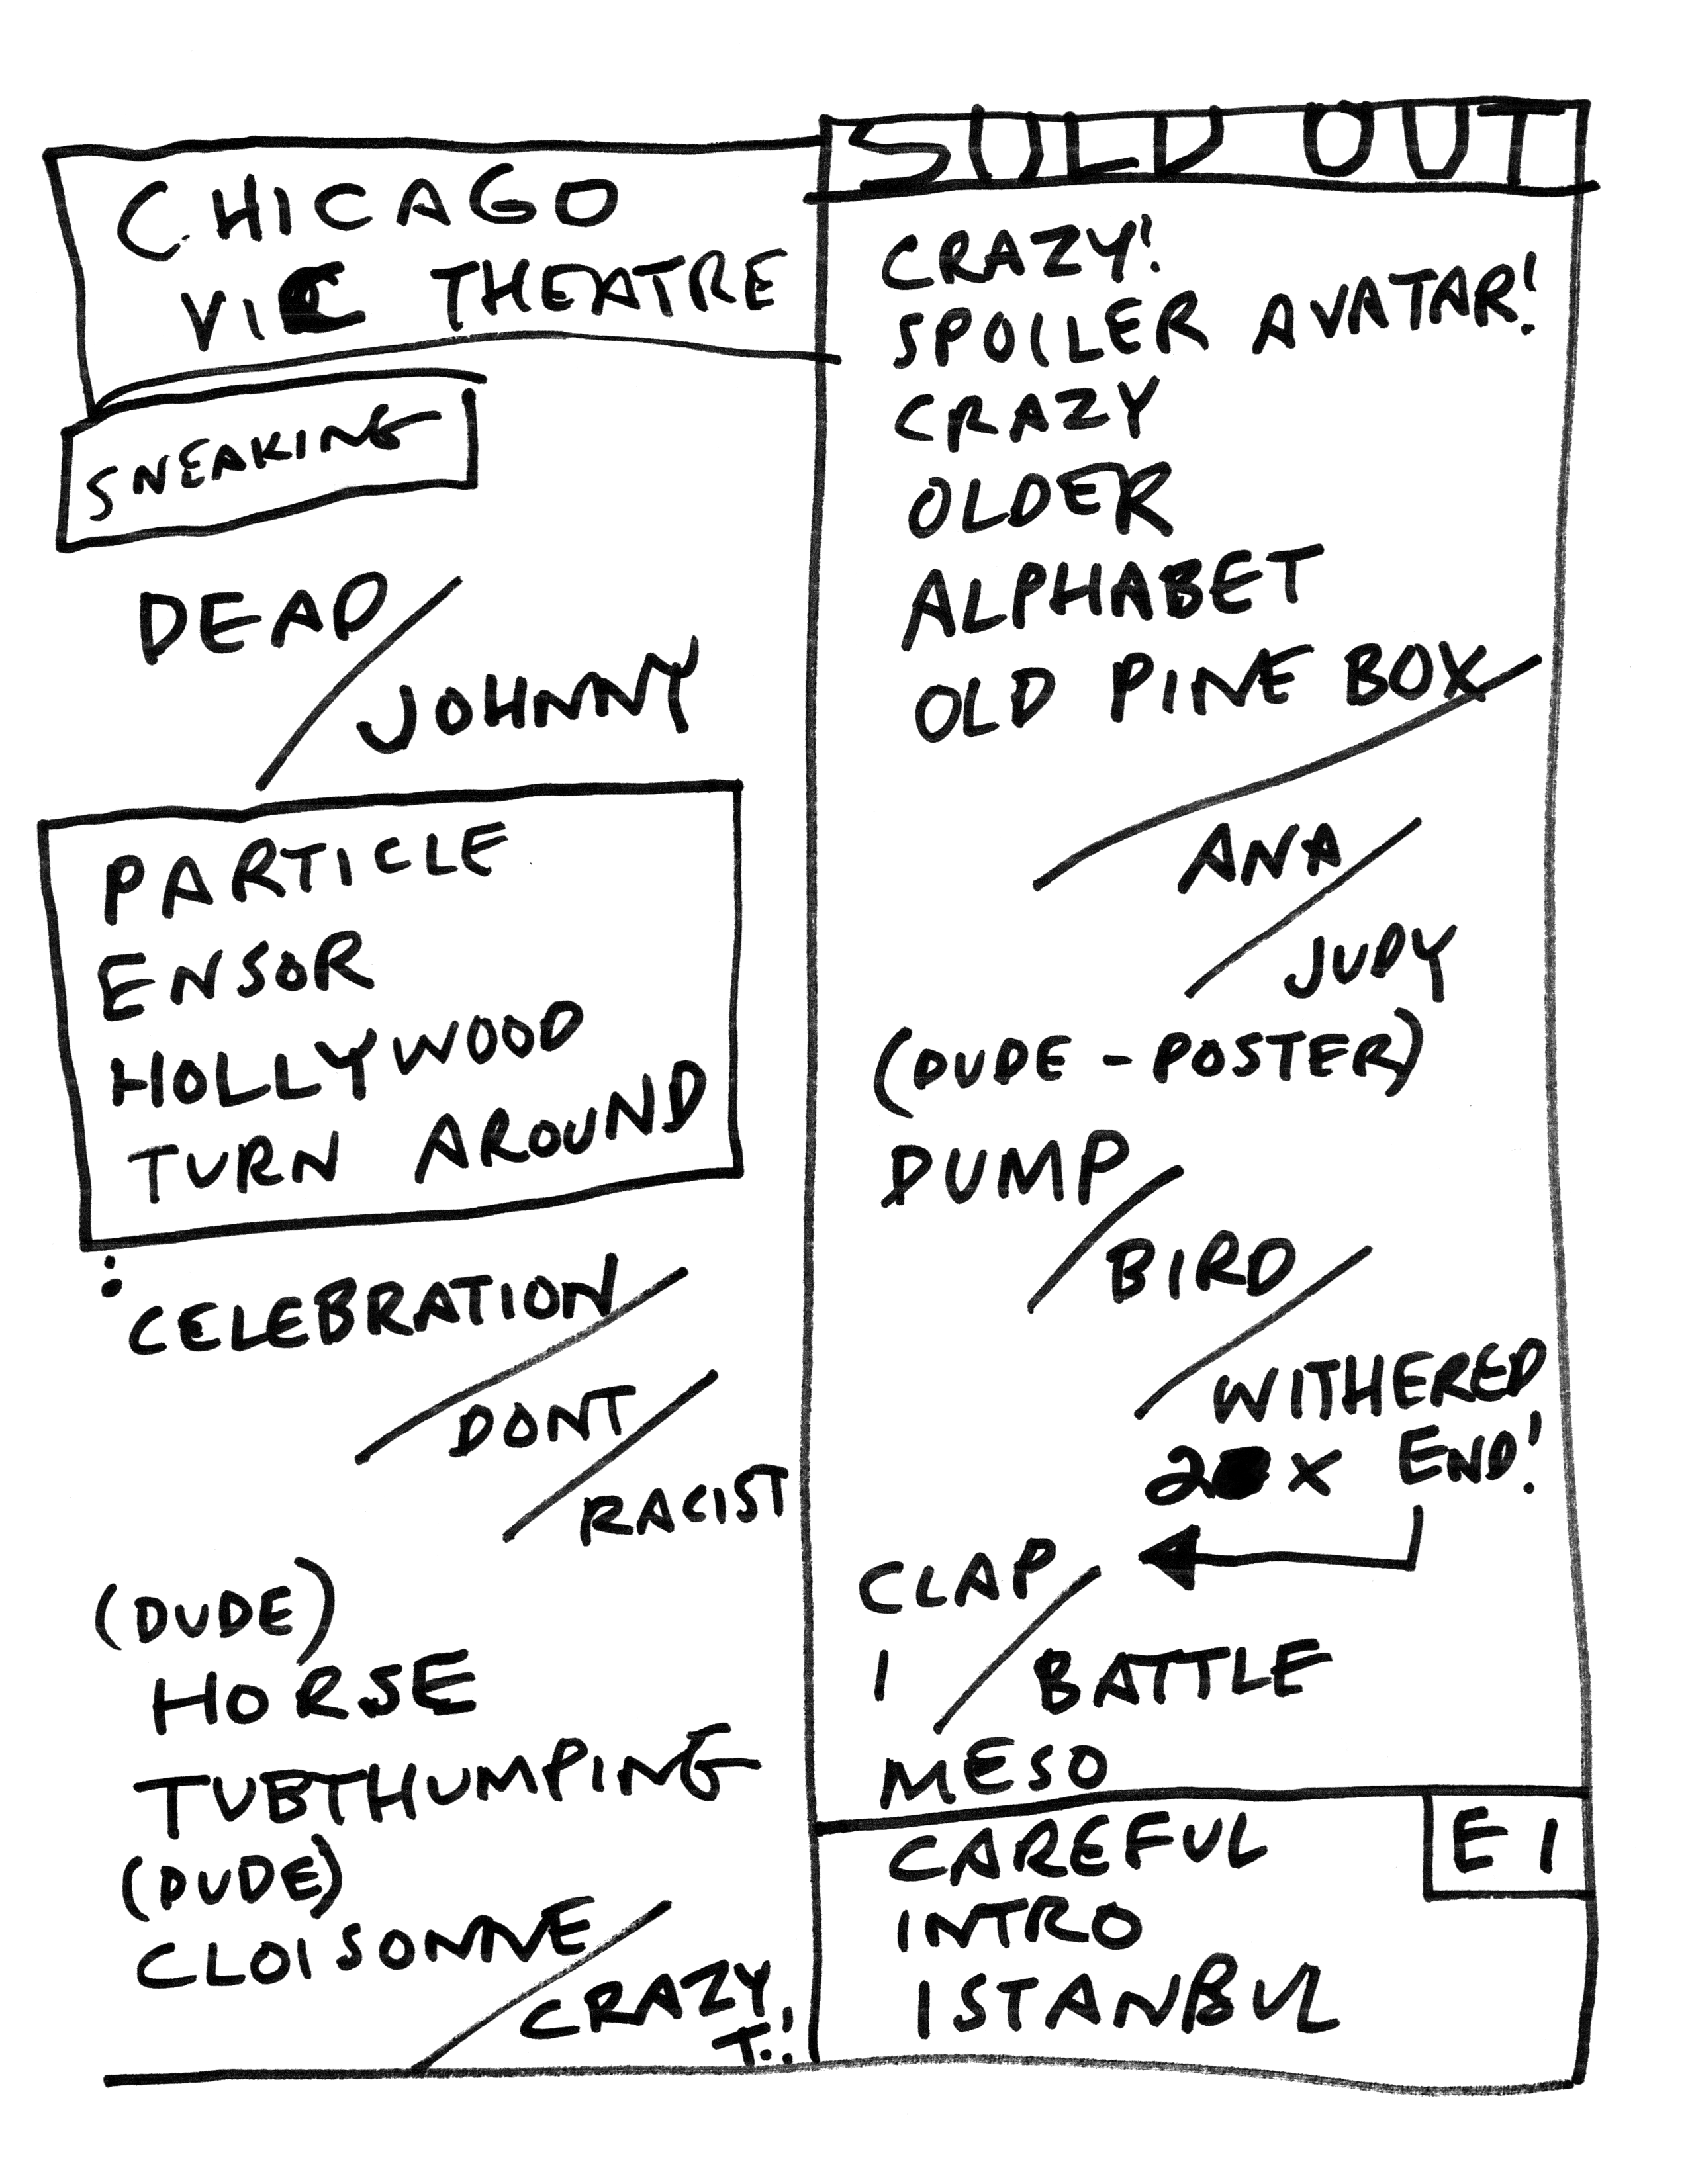 CHICAGO
VIC THEATRE
SNEAKING
DEAD/
JOHNNY
PARTICLE
ENSOR
HOLLYWOOD
TURN AROUND
:
CELEBRATION/
DONT/
RACIST
(DUDE)
HORSE
TUBTHUMPING
(DUDE)
CLOISONNE/
CRAZY
T.!
SOLD OUT
CRAZY!
SPOILER AVATAR!
CRAZY
OLDER
ALPHABET
OLD PINE BOX/
ANA/
JUDY
(DUDE - POSTER)
DUMP/
BIRD/
WITHERED
2 X END!
CLAP/
1 BATTLE
MESO
CAREFUL E1
INTRO
ISTANBUL